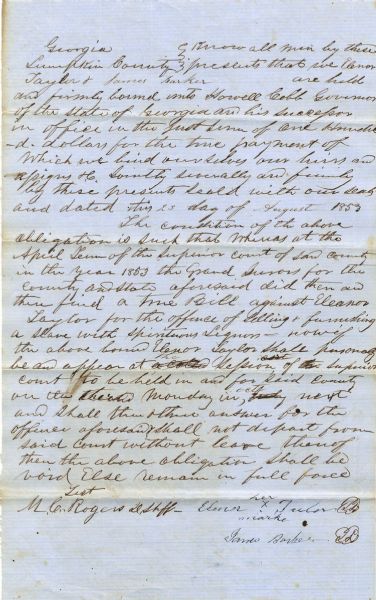 Georgia } Know all men by these
Lumpkin County } presents that we Elenor
Taylor & James Parker are held
and firmly bound unto Howell Cobb Governor
of the state of Georgia and his successor
in office in the Just sum of One Hundre
-d. dollars for the true payment of
Which we bind ourselves our heirs and
assigns &c. Jointly severally and firmly
by these presents Seald with our seals
and dated this 23 day of August 1853
The condition of the above
obligation is such that Whereas at the
April Term of the Superior court of said county
in the year 1853 the Grand Jurors for the
county and state aforesaid did then and
there find a true Bill against Eleanor
Taylor for the offence of Selling & furnishing
a slave with Spiritous Liquors – now if
the above bound Elenor Taylor shall personaly
be and appear at session of the superior
court to be held in and for said county
on the Monday in next
and shall then & there answer for the
offence aforesaid shall not depart from
said court without leave thereof
then the above obligation shall be
void Else remain in full force
Test
M. C. Rogers D. Shff Elenor her x mark Tailor
James Parker